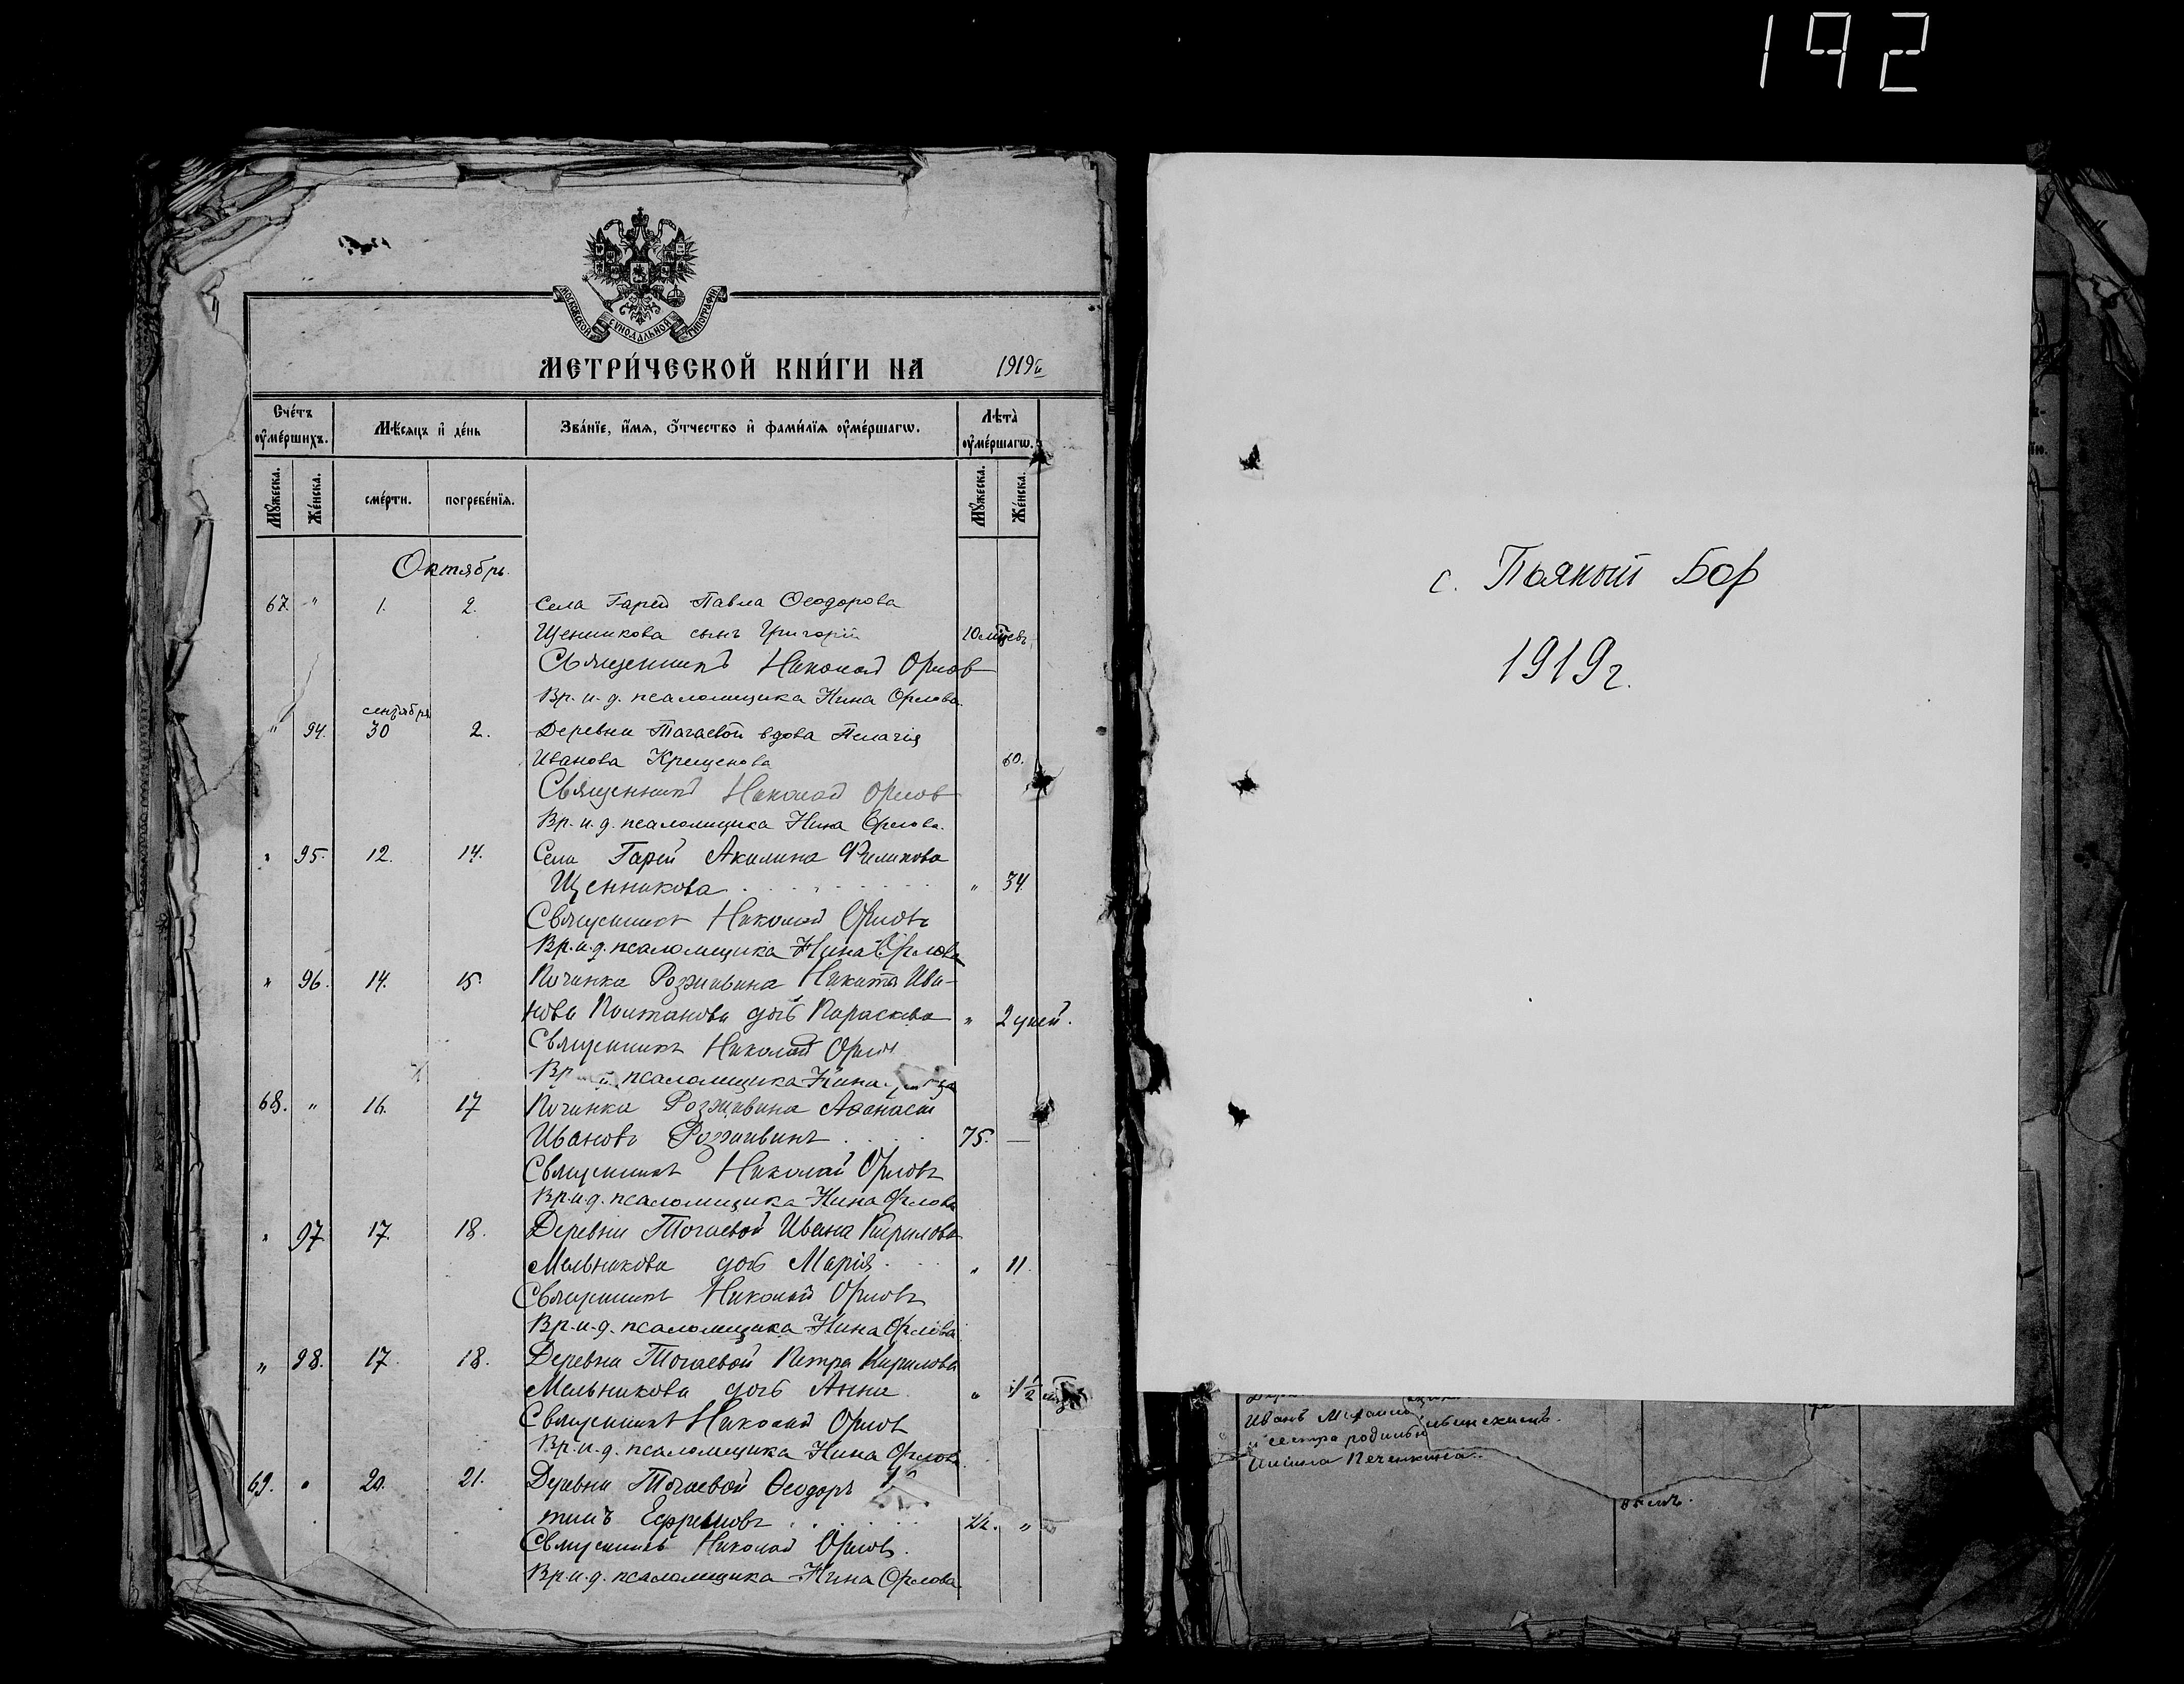 192
МОСКОВСКОЙ СѴНОДАЛЬНОЙ ТИПОГРАФІИ
МЕТРИ́ЧЕСКОЙ КНИ́ГИ НА 1919й
Сче́тъ ᲂу҆ме́ршихъ.
Мѣ́сяцъ и҆ де́нь
Зва́нїе, и҆́мѧ, ѻ҆́тчество и҆ фами́лїѧ ᲂу҆ме́ршагѡ.
Лѣта̀ ᲂу҆ме́ршагѡ.
Мꙋ́жеска.
Же́нска.
сме́рти.
погребе́нїѧ.
Мꙋ́жеска.
Же́нска.
Октябрь.
67 " 1. 2. Села Гарей Павла Ѳеодорова
Щенникова сынъ Григорій 10 мцевъ
Священникъ Николай Орлов
Вр. и. д. псаломщика Нина Орлова.
сентября
" 94. 30 2. Деревни Тагаевой вдова Пелагія
Иванова Крещенова 60.
Священникъ Николай Орлов
Вр. и. д. псаломщика Нина Орлова.
" 95. 12. 14. Села Гарей Акилина Филипова
Щенникова " 34
Священникъ Николай Орловъ
Вр. и. д. псаломщика Нина Орлова
" 96. 14. 15. Починка Розживина Никиты Ива-
нова Полтанова дочь Параскева " 2 дней.
Священникъ Николай Орлов
Вр псаломщика Нина
68. " 16. 17 Починка Розживина Аѳанасій
Ивановъ Розживинъ 75. —
Священникъ Николай Орловъ
Вр. и. д. псаломщика Нина Орлова
" 97 17. 18. Деревни Тогаевой Ивана Кирилова
Мельникова дочь Марія " 11.
Священникъ Николай Орловъ
Вр. и. д. псаломщика Нина Орлова
" 98. 17. 18. Деревни Тогаевой Петра Кирилова
Мельникова дочь Анна " 1½
Священникъ Николай Орлов
Вр. и. д. псаломщика Нина Орлова.
69. " 20. 21. Деревни Тогаевой Ѳеодоръ
Ефремовъ "
Священникъ Николай Орловъ.
Вр. и. д. псаломщика Нина Орлова
с. Пьяный Бор
1919г.
Иванъ
и сестра
Печенкина.